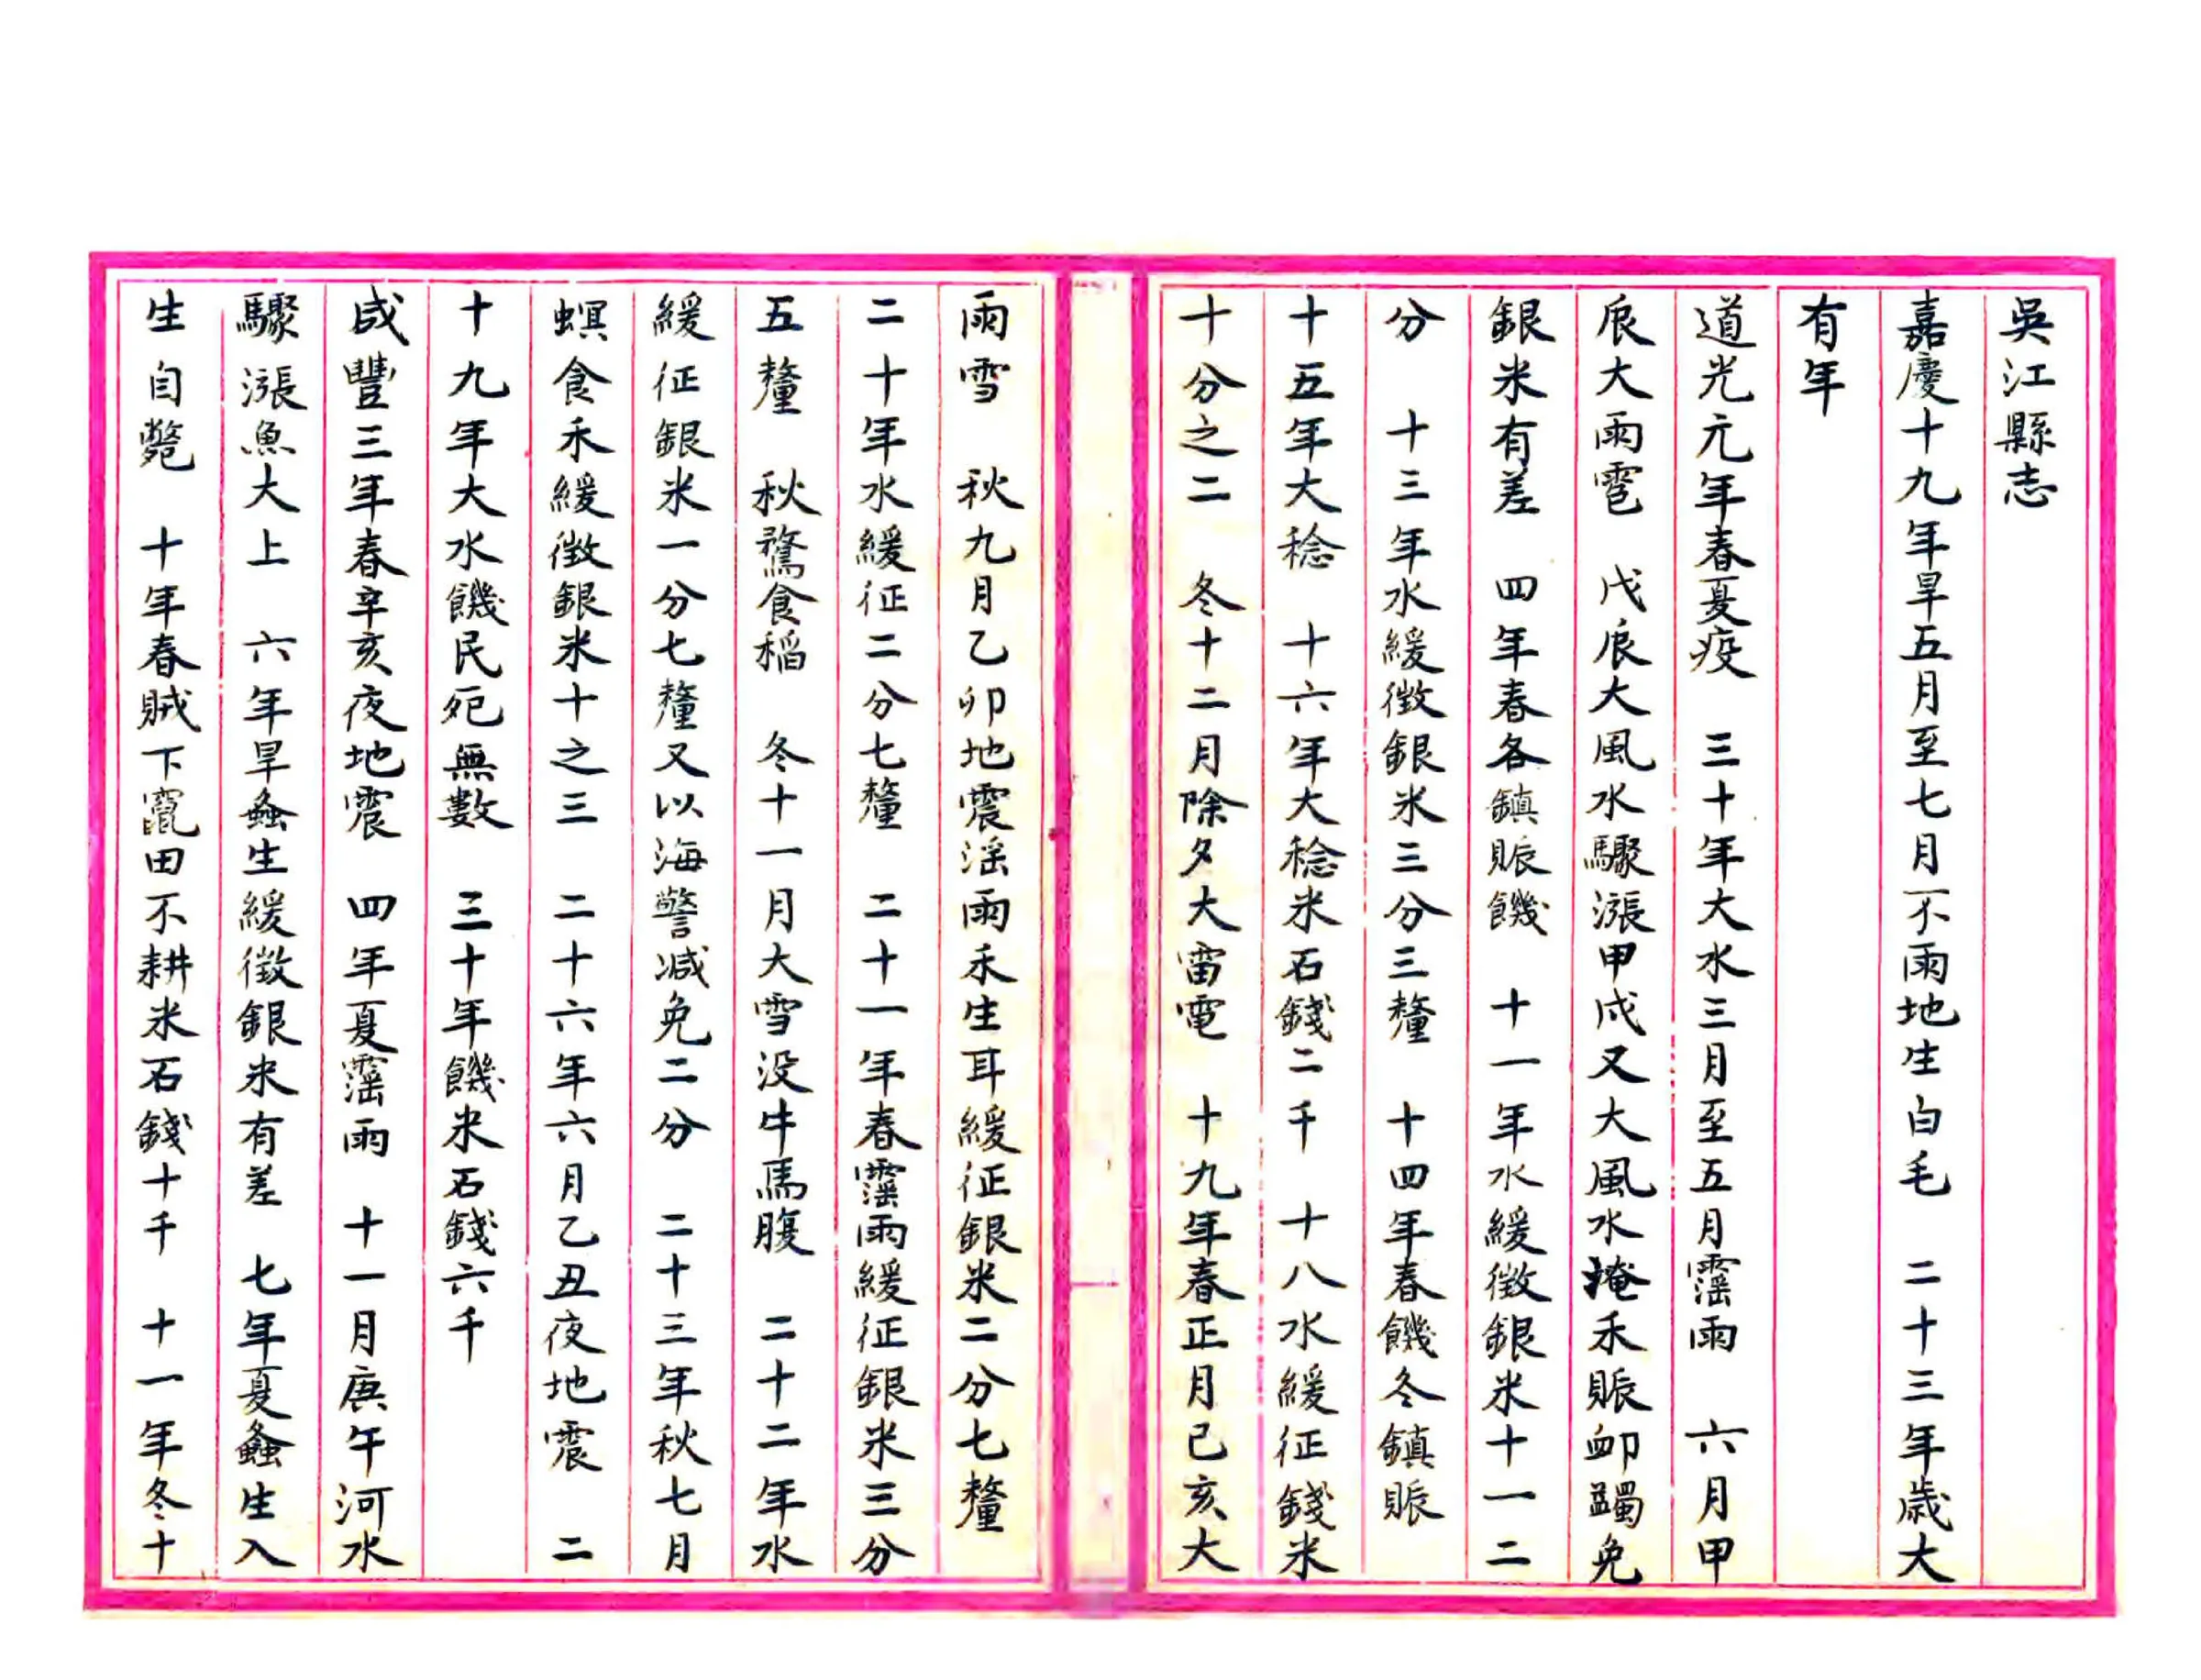 吳江縣志
嘉慶十九年旱五月至七月不雨地生白毛　二十三年歲大
有年
道光元年春夏疫　三十年大水三月至五月霪雨　六月甲
辰大雨雹　戊辰大風水驟漲甲戌又大風水掩禾賑卹蠲免
銀米有差　四年春各鎮賑饑　十一年水緩徵銀米十一二
分　十三年水緩徵銀米三分三釐　十四年春饑冬鎮賑
十五年大稔　十六年大稔米石錢二千　十八水緩征錢米
十分之二　冬十二月除夕大雷電　十九年春正月己亥大
雨雪　秋九月乙卯地震淫雨禾生耳緩征銀米二分七釐
二十年水緩征二分七釐　二十一年春霪雨緩征銀米三分
五釐　秋鶩食稻　冬十一月大雪没牛馬腹　二十二年水
緩征銀米一分七釐又以海警减免二分　二十三年秋七月
螟食禾緩徴銀米十之三　二十六年六月乙丑夜地震　二
十九年大水饑民死無數　三十年饑米石錢六千
咸豐三年春辛亥夜地震　四年夏霪雨　十一月庚午河水
驟漲魚大上　六年旱螽生緩徴銀米有差　七年夏螽生入
生自斃　十年春賊下竄田不耕米石錢十千　十一年冬十